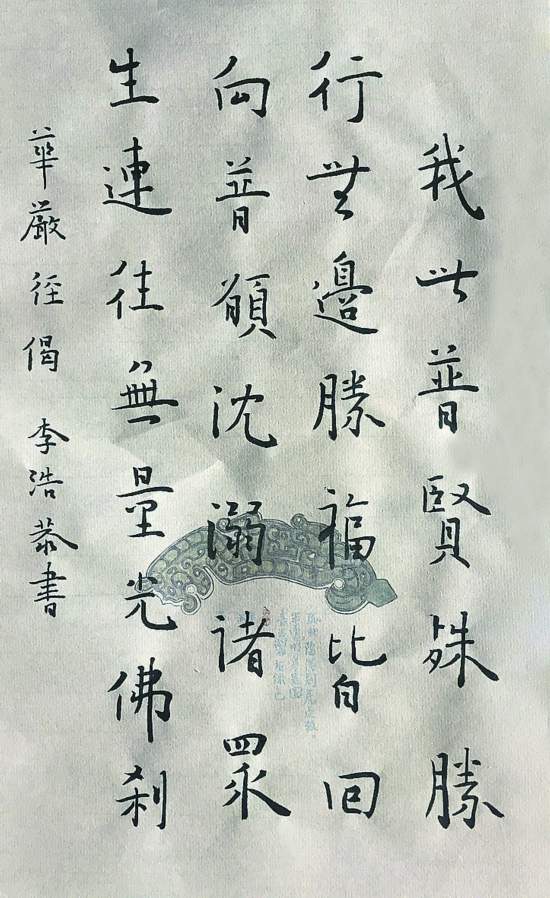 我此普賢殊勝
行無邊勝福皆回
向普願沈溺諸眾
生連往無量光佛刹
華嚴径偈 李浩恭書